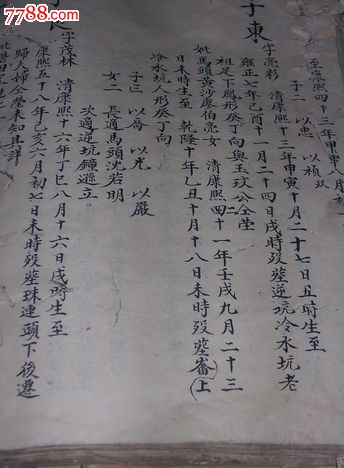 7788.com
至康熙四十三年甲申八月初
子二 以忠 以禎
子東
字亮彩 清康熙十三年甲寅十月二十七日丑時生至
雍正七年己酉十一月二十四日戌時歿塟逆坑冷水坑老
祖足下鳳形癸丁向與玉玟公仝塋
妣馬頭黃沙廖伯亮女 清康熙四十一年壬戌九月二十三
日未時生至 乾隆十年乙丑十月十八日未時歿塟崙上
冷水坑人形癸丁向
子三 以喬 以光 以嚴
女二 長適馬頭沈若明
次適逆坑鐘遜立
字茂林 清康熙十六年丁巳八月十六日戌時生至
康熙五十八年己亥六月初七日未時歿塟珠連頭下後遷
歸大婦公塋未知其詳